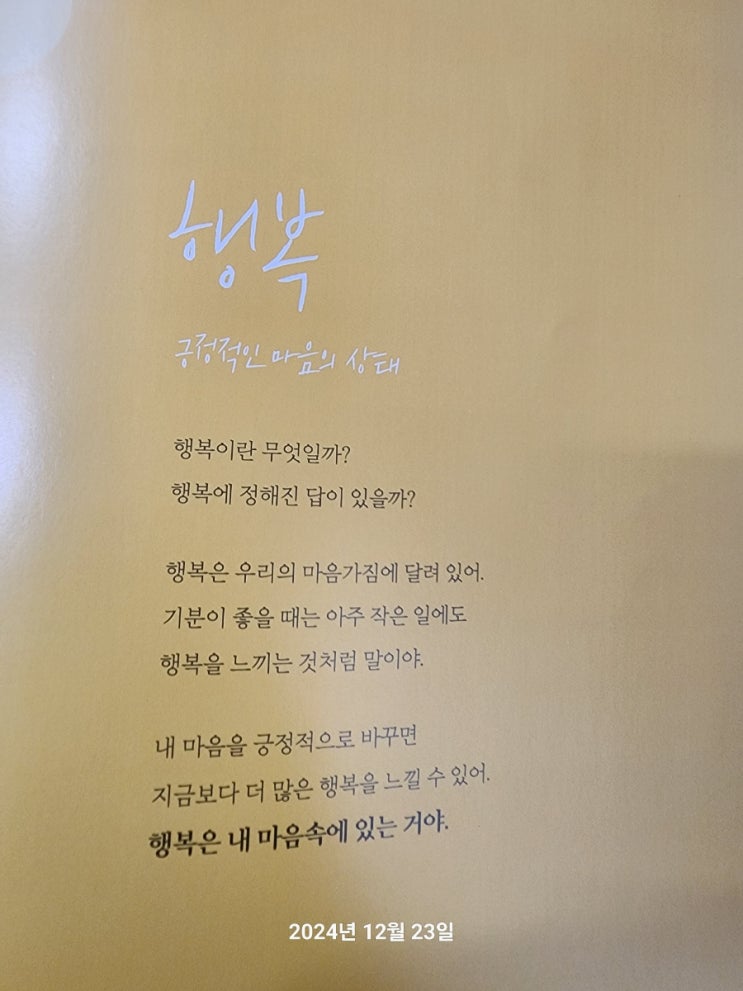 행복
긍정적인 마음의 상태
행복이란 무엇일까?
행복에 정해진 답이 있을까?
행복은 우리의 마음가짐에 달려 있어.
기분이 좋을 때는 아주 작은 일에도
행복을 느끼는 것처럼 말이야.
내 마음을 긍정적으로 바꾸면
지금보다 더 많은 행복을 느낄 수 있어.
행복은 내 마음속에 있는 거야.
2024년 12월 23일